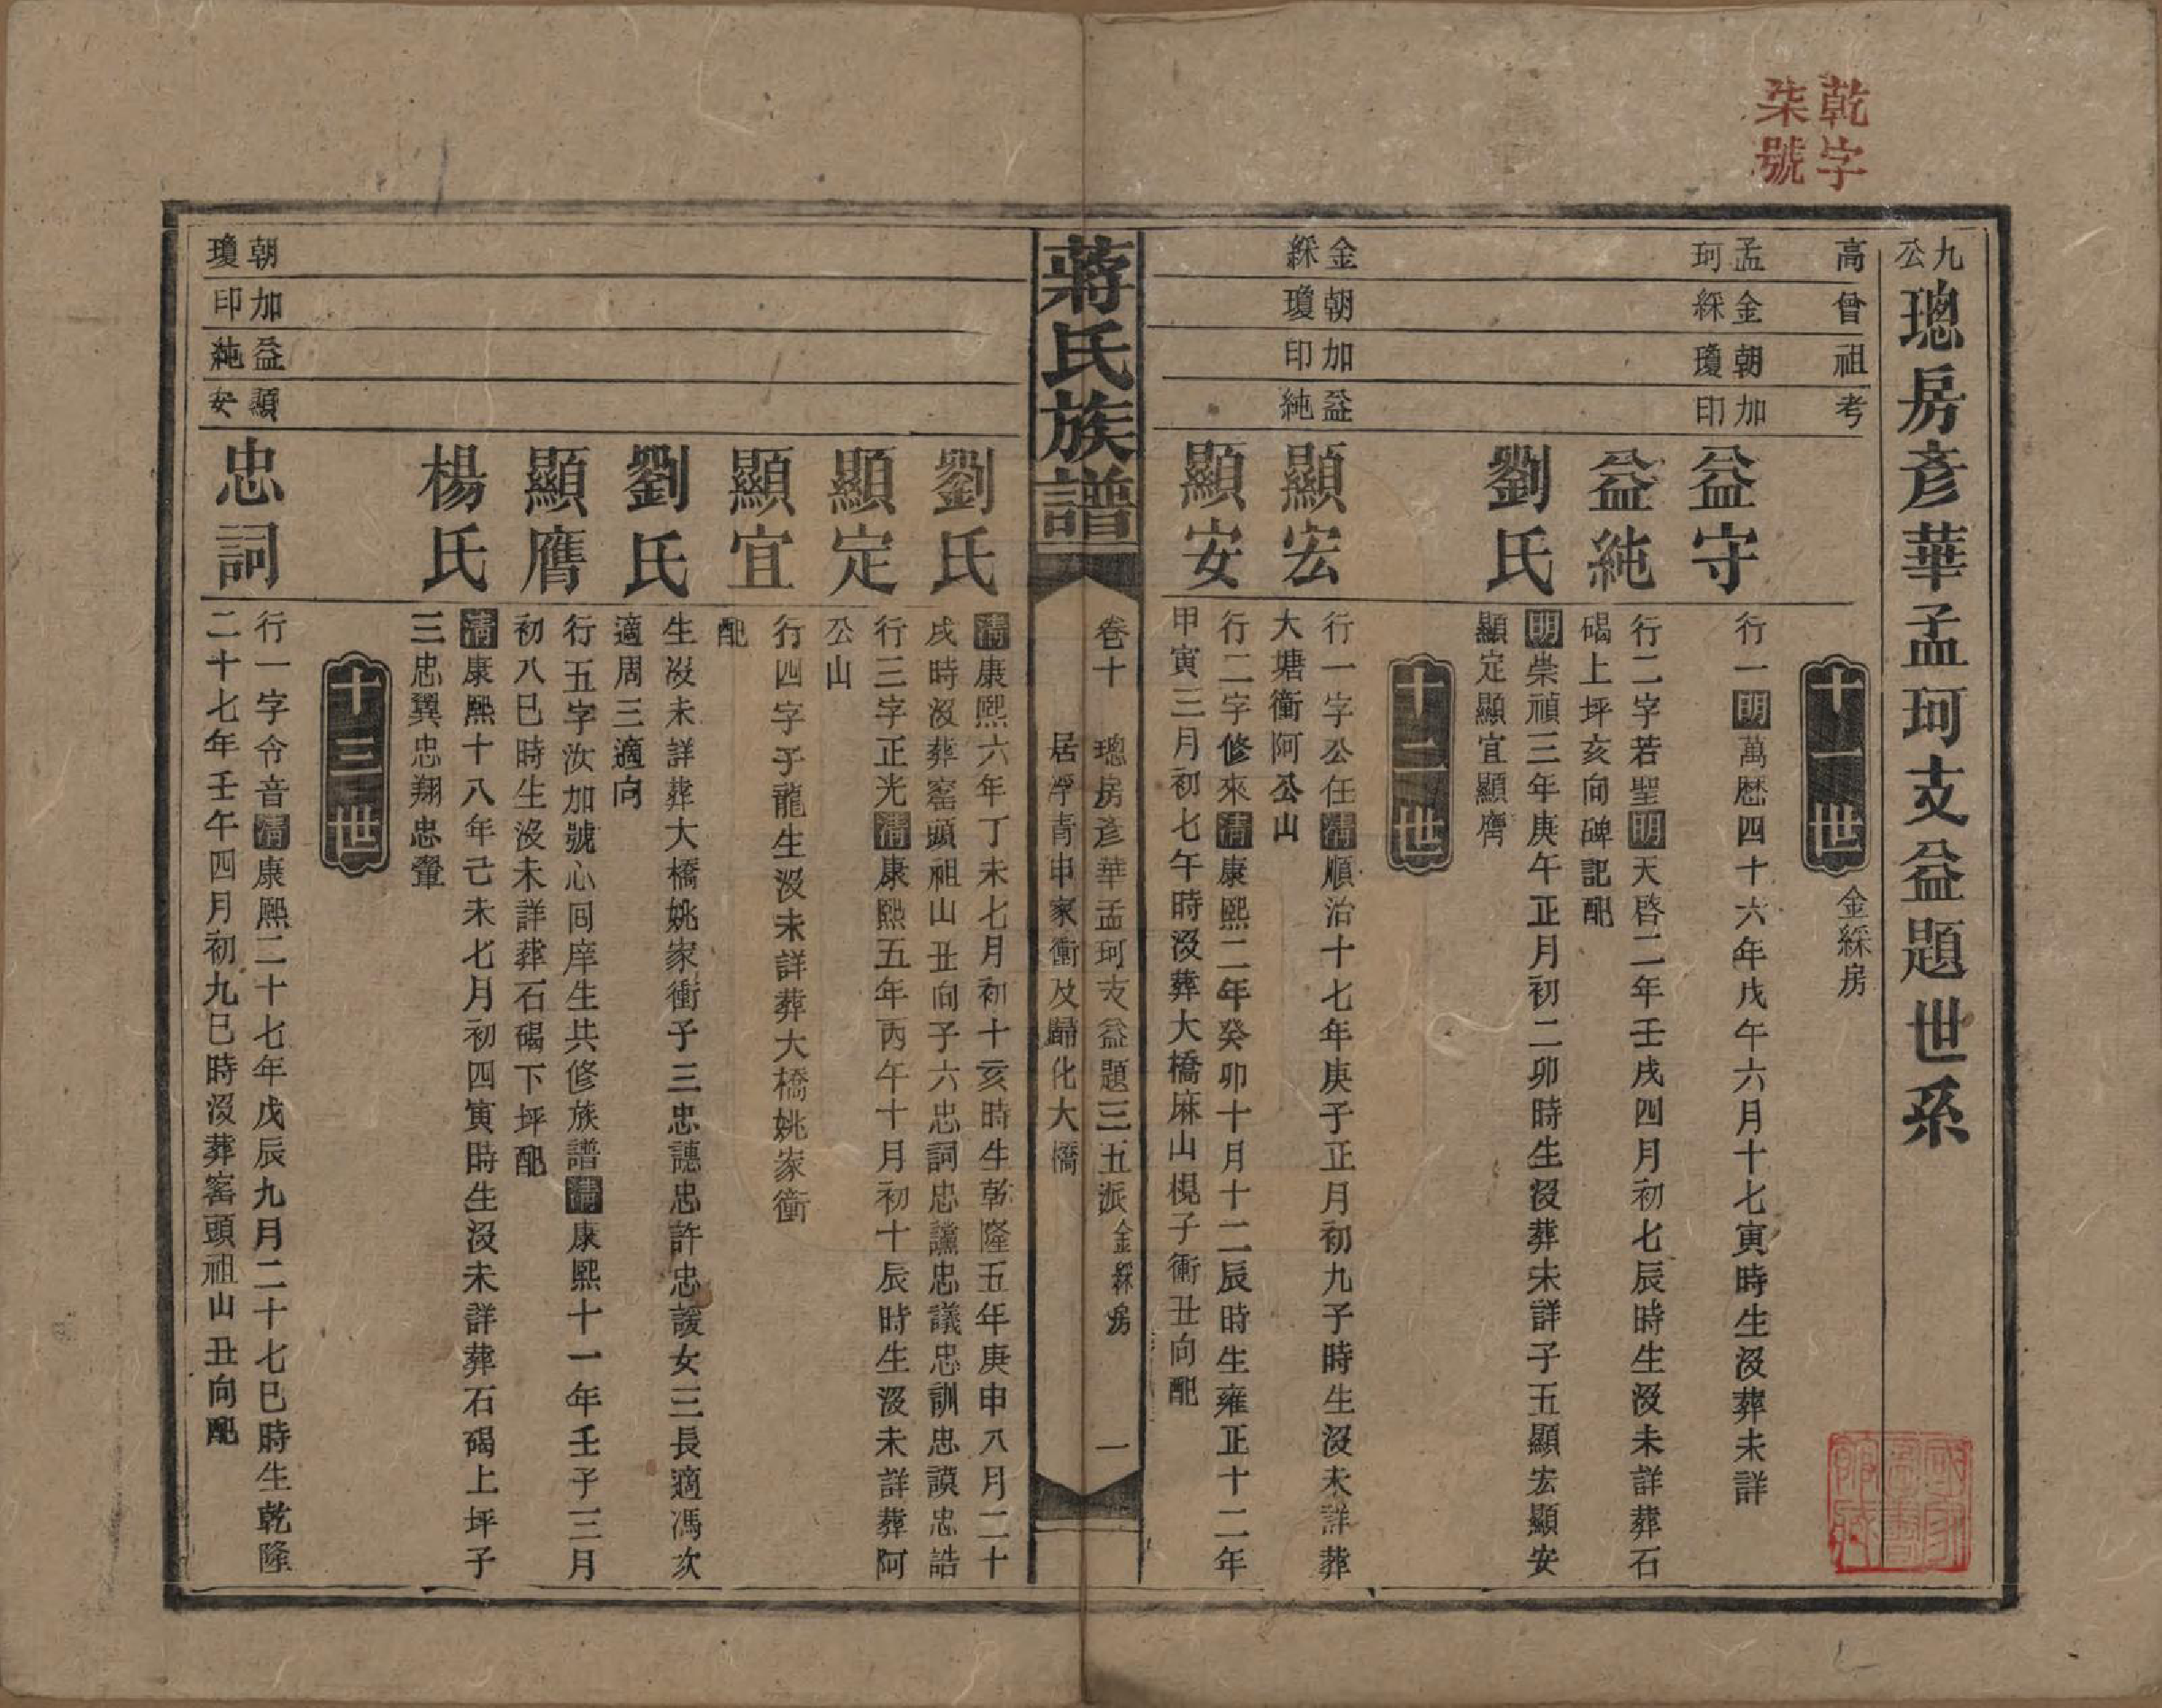 乾字
柒號
九公璁房彥華孟珂支益題世系
高曾祖考
十一世 金綵房
孟珂
金綵
朝瓊
加印
益守
行一明萬歷四十六年戊午六月十七寅時生沒葬未詳
益純
行二字若聖明天啓二年壬戌四月初七辰時生沒未詳葬石
碣上坪亥向碑記配
劉氏
明崇禎三年庚午正月初二卯時生沒葬未詳子五顯宏顯安
顯定顯宜顯膺
十二世
金綵
朝瓊
加印
益純
顯宏
行一字公任清順治十七年庚子正月初九子時生沒未詳葬
大塘衝阿公山
顯安
行二字修來清康熙二年癸卯十月十二辰時生雍正十二年
甲寅三月初七午時沒葬大橋麻山梘子衝丑向配
蔣氏族譜
卷十 璁房彥華孟珂支益題三五派金綵房 一
居浮青申家衝及歸化大橋
劉氏
清康熙六年丁未七月初十亥時生乾隆五年庚申八月二十
戌時沒葬窰頭祖山丑向子六忠詞忠讜忠議忠訓忠謨忠誥
顯定
行三字正光清康熙五年丙午十月初十辰時生沒未詳葬阿
公山
顯宜
行四字子龍生沒未詳葬大橋姚家衝
配
劉氏
生沒未詳葬大橋姚家衝子三忠譓忠許忠諼女三長適馮次
適周三適向
顯膺
行五字汝加號心囘庠生共修族譜清康熙十一年壬子三月
初八巳時生沒未詳葬石碣下坪配
楊氏
清康熙十八年己未七月初四寅時生沒未詳葬石碣上坪子
三忠翼忠翔忠翬
十三世
朝瓊
加印
益純
顯安
忠詞
行一字令音清康熙二十七年戊辰九月二十七巳時生乾隆
二十七年壬午四月初九巳時沒葬窰頭祖山丑向配